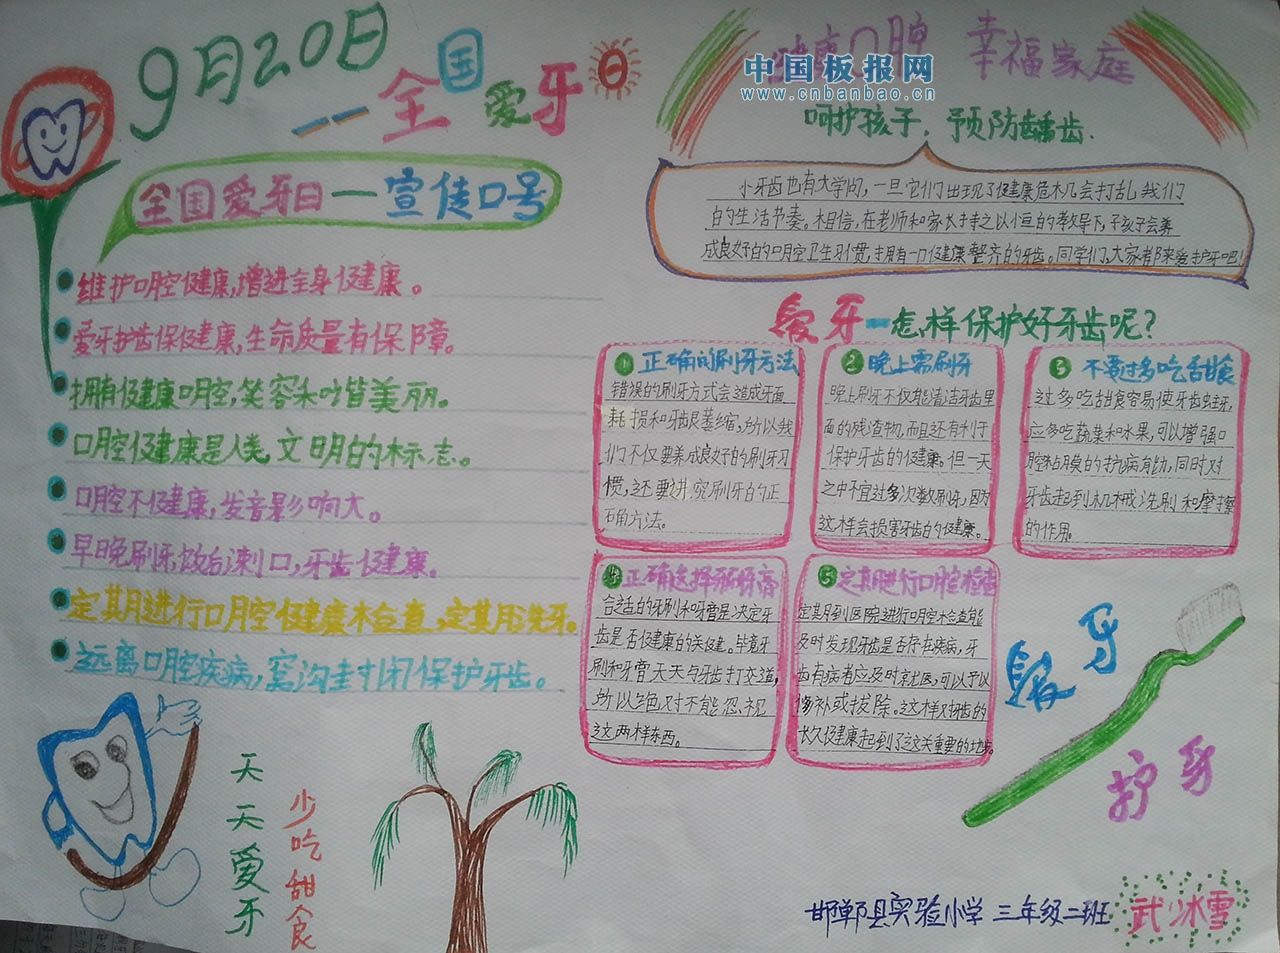 9月20日
--全国爱牙日
全国爱牙日—宣传口号
维护口腔健康,增进全身健康。
爱牙护齿保健康,生命质量有保障。
拥有健康口腔,笑容和谐美丽。
口腔健康是人类,文明的标志。
口腔不健康,发音影响大。
早晚刷牙饭后漱口,牙齿健康。
定期进行口腔健康检查,定期洗牙。
远离口腔疾病,窝沟封闭保护牙齿。
天天爱牙
少吃甜食
健康口腔 幸福家庭
中国板报网
www.cnbanbao.cn
呵护孩子,预防龋齿.
小牙齿也有大学问,一旦它们出现了健康危机会打乱我们
的生活节奏。相信,在老师和家长持之以恒的教导下,孩子会养
成良好的口腔卫生习惯,拥有一口健康整齐的牙齿。同学们,大家都来爱护牙吧!
爱牙—怎样保护好牙齿呢?
1 正确的刷牙方法
错误的刷牙方式会造成牙面
耗损和牙龈萎缩,所以我
们不仅要养成良好的刷牙习
惯,还要讲究刷牙的正
确方法。
2 晚上需刷牙
晚上刷牙不仅能清洁牙齿里
面的残渣物,而且还有利于
保护牙齿的健康。但一天
之中不宜过多次数刷牙,因为
这样会损害牙齿的健康。
3 不要过多吃甜食
过多吃甜食容易使牙齿蛀牙,
应多吃蔬菜和水果,可以增强口
腔粘膜的抗病有能力,同时对
牙齿起到机械洗刷和摩擦
的作用。
4 正确选择牙刷牙膏
合适的牙刷和牙膏是决定牙
齿是否健康的关健。毕竟牙
刷和牙膏天天与牙齿打交道,
所以绝对不能忽视
这两样东西。
5 定期进行口腔检查
定期到医院进行口腔检查能
及时发现牙齿是否存在疾病,牙
齿有病者应及时就医,可以予以
修补或拔除。这样对牙齿的
长久健康起到了这关重要的地步。
爱牙
护牙
邯郸县实验小学 三年级二班 武冰雪